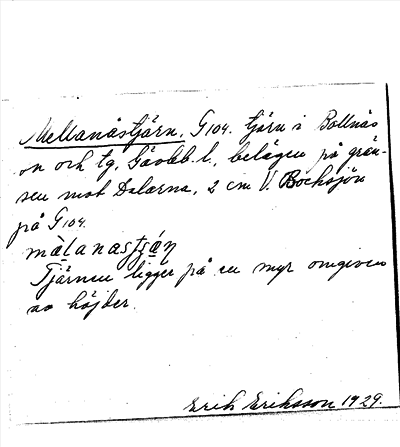 Mellanåstjärn, G104. tjärn i Bollnäs
sn och tg, Gävleb. l., belägen på grän-
sen mot Dalarna, 2 cm V. Bocksjön
på G104.
mälanastjạ́ṇ
Tjärnen ligger på en myr omgiven
av höjder.
Erik Eriksson 1929.